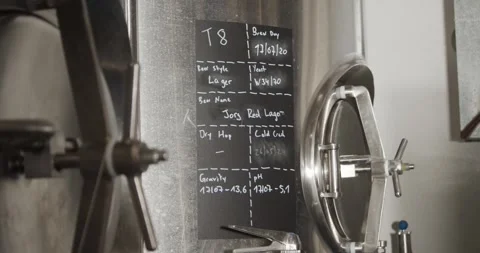 T8
Brew Day
17/07/20
Beer Style
Lager
Yeast
W34/70
Beer Name
Jors Red Lager
Dry Hop
-
Cold Crash
Gravity
17/07 - 13.6
pH
17/07 - 5.1